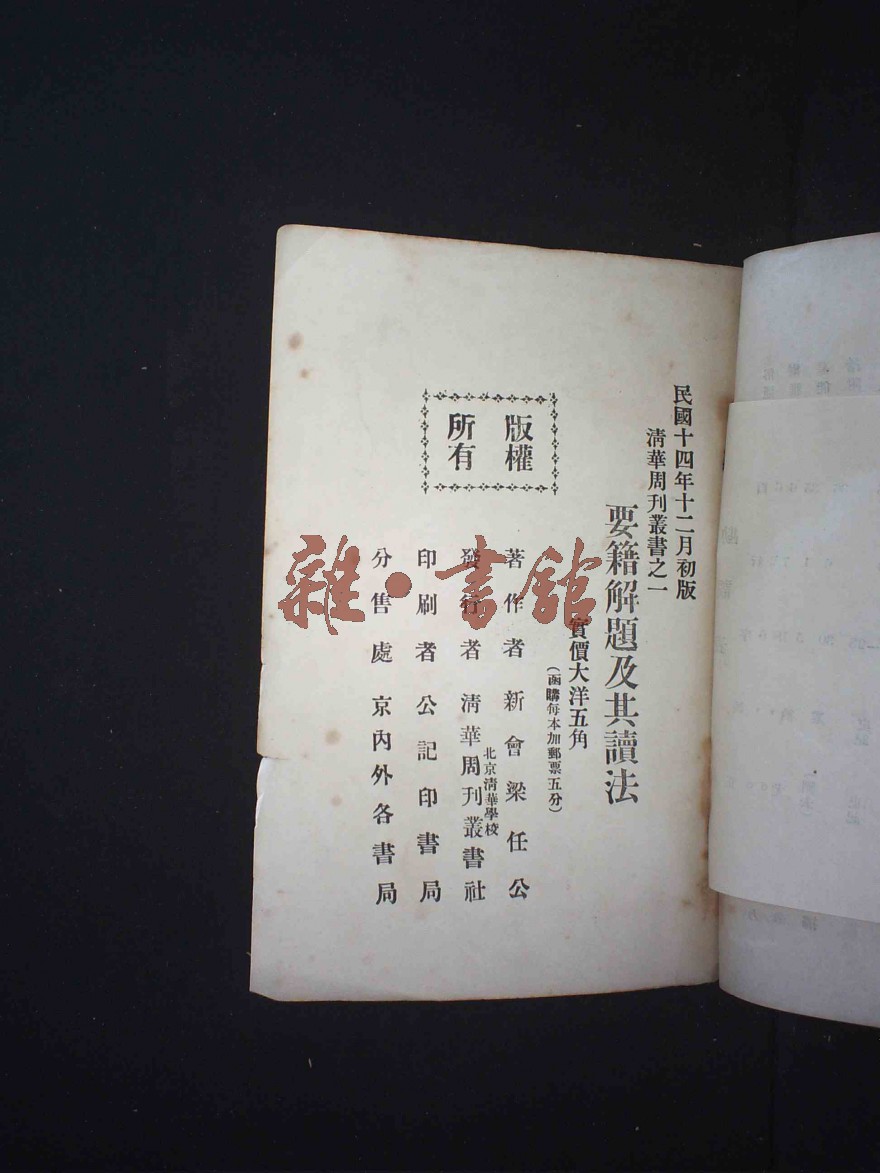 民國十四年十二月初版
清華周刊叢書之一
要籍解題及其讀法
實價大洋五角
(函購每本加郵票五分)
版權
所有
著作者 新會梁任公
發行者 北京清華學校
清華周刊叢書社
印刷者 公記印書局
分售處 京內外各書局
雜·書館